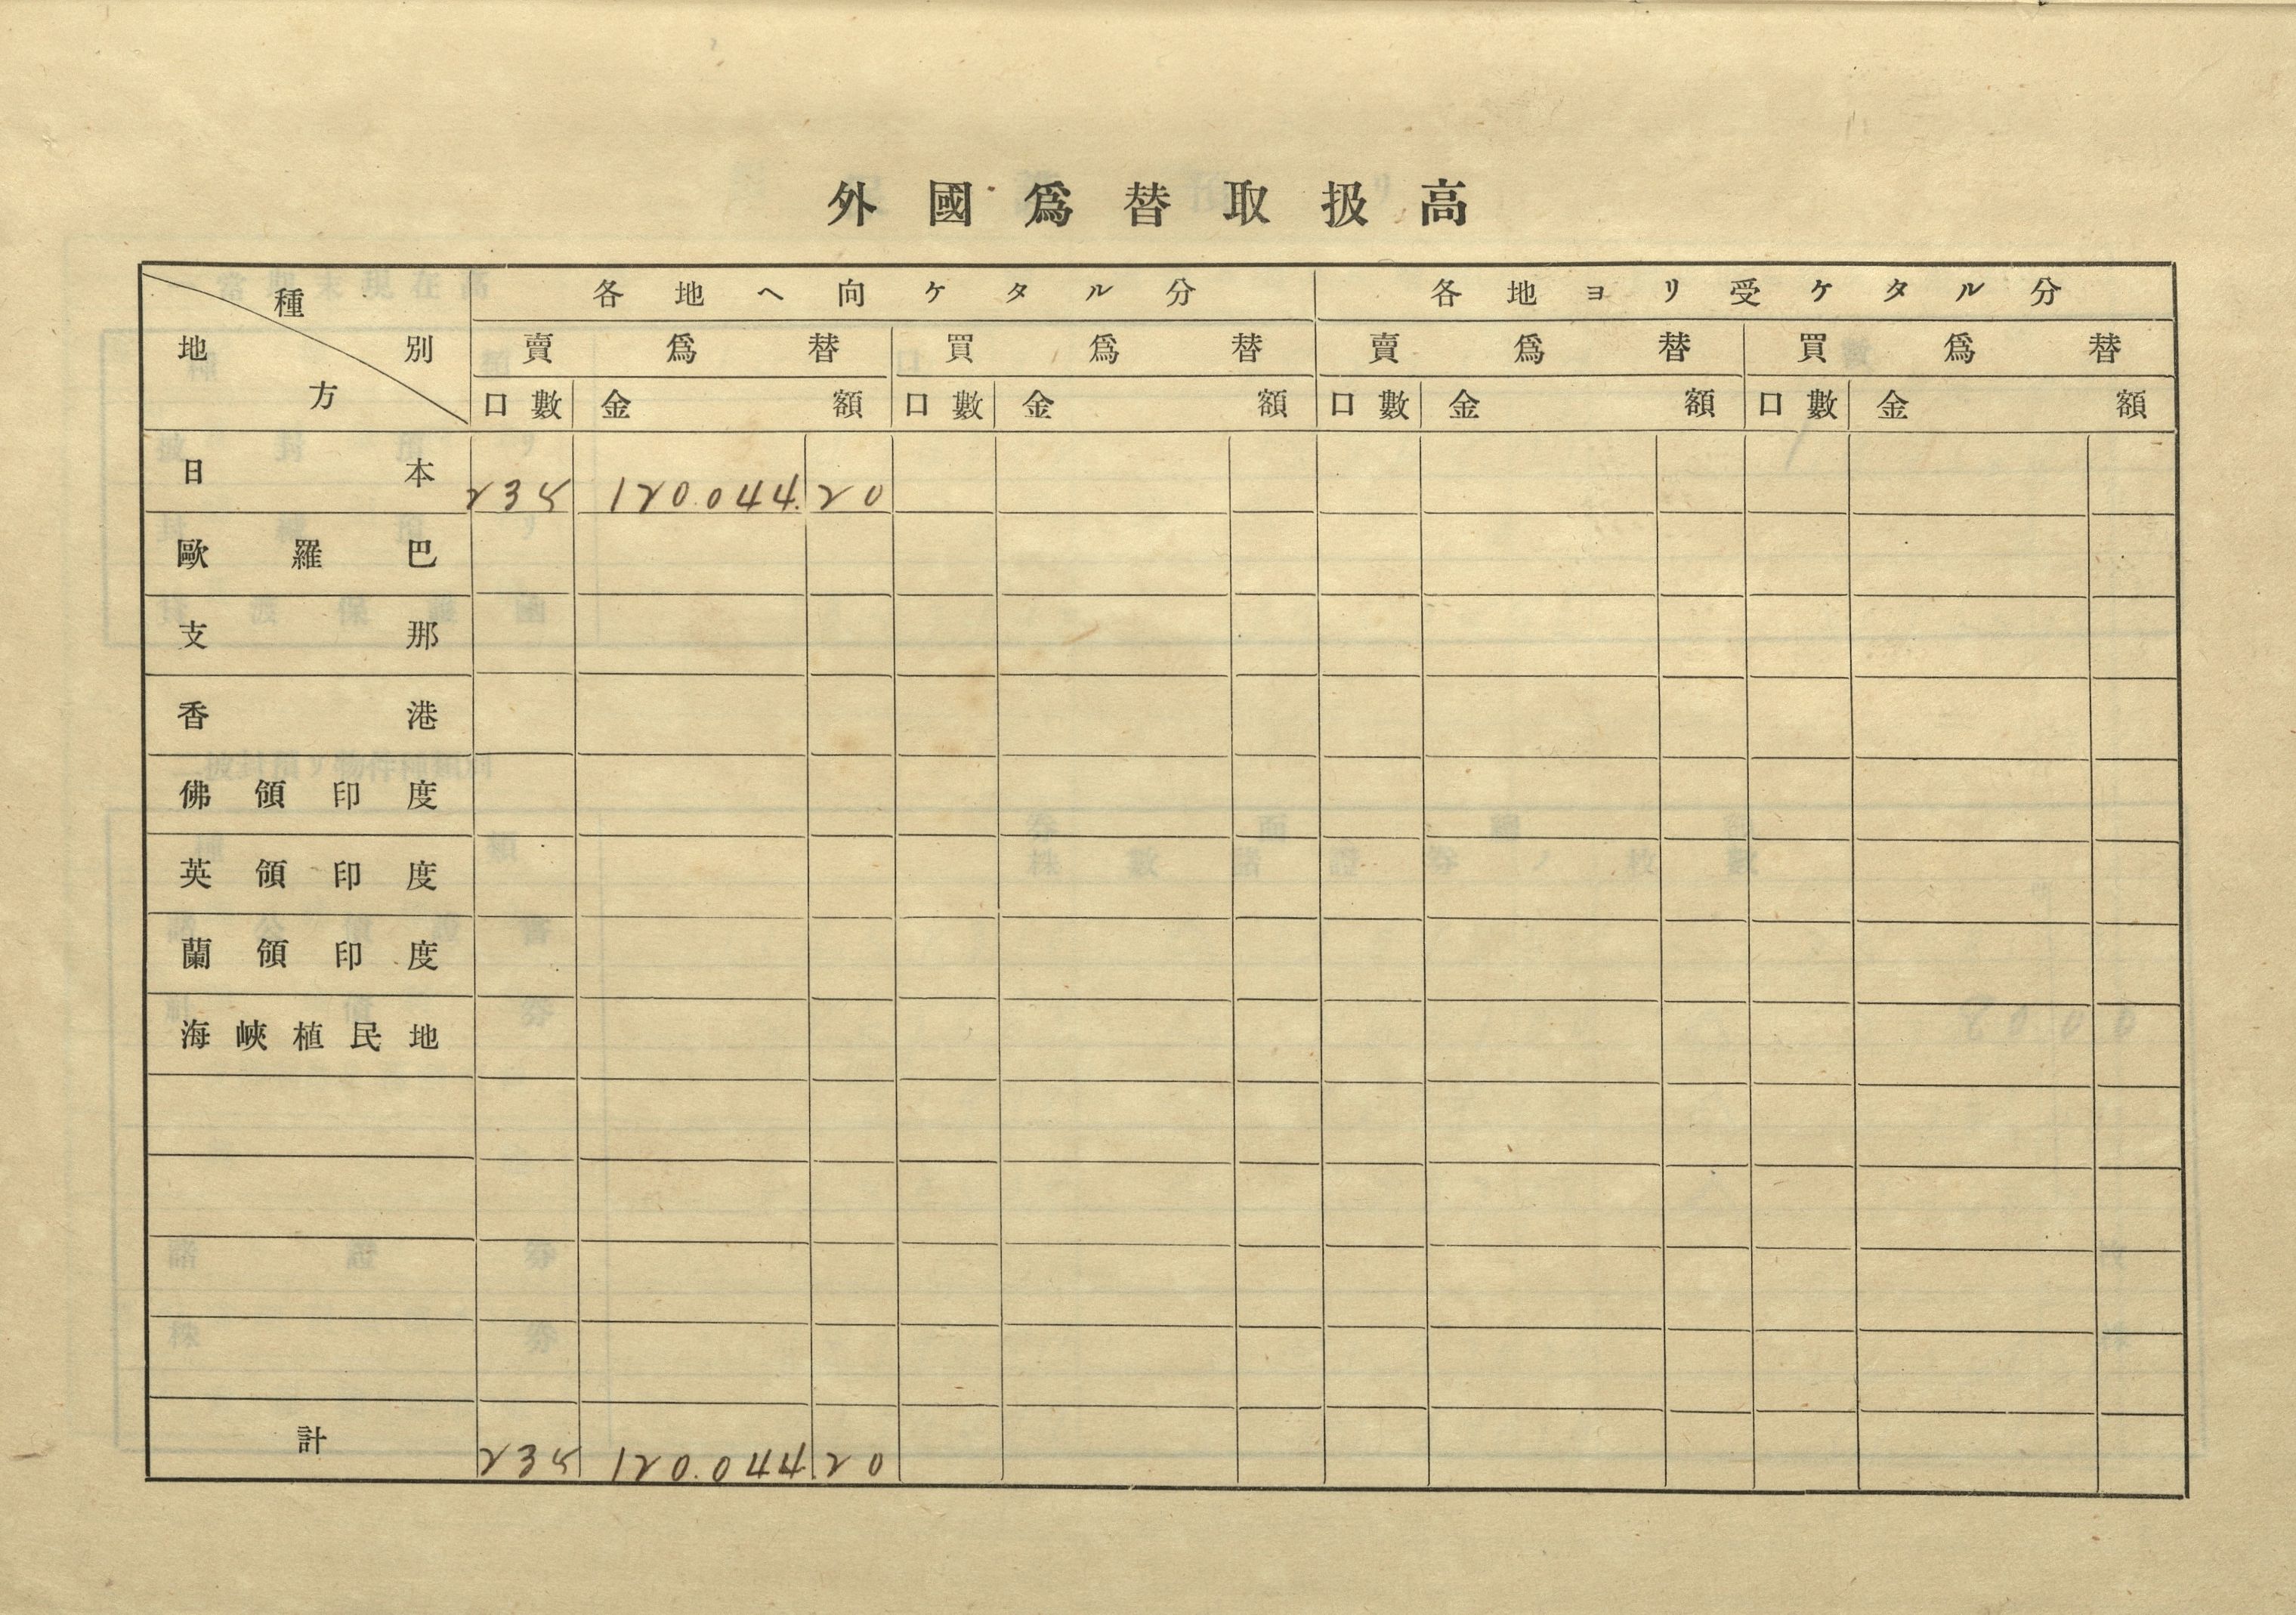 外國爲替取扱高
種別 地方 各地ヘ向ケタル分 各地ヨリ受ケタル分
賣爲替 買爲替 賣爲替 買爲替
口數 金額 口數 金額 口數 金額 口數 金額
日本 235 120.044.20
歐羅巴
支那
香港
佛領印度
英領印度
蘭領印度
海峽植民地
計 235 120.044.20